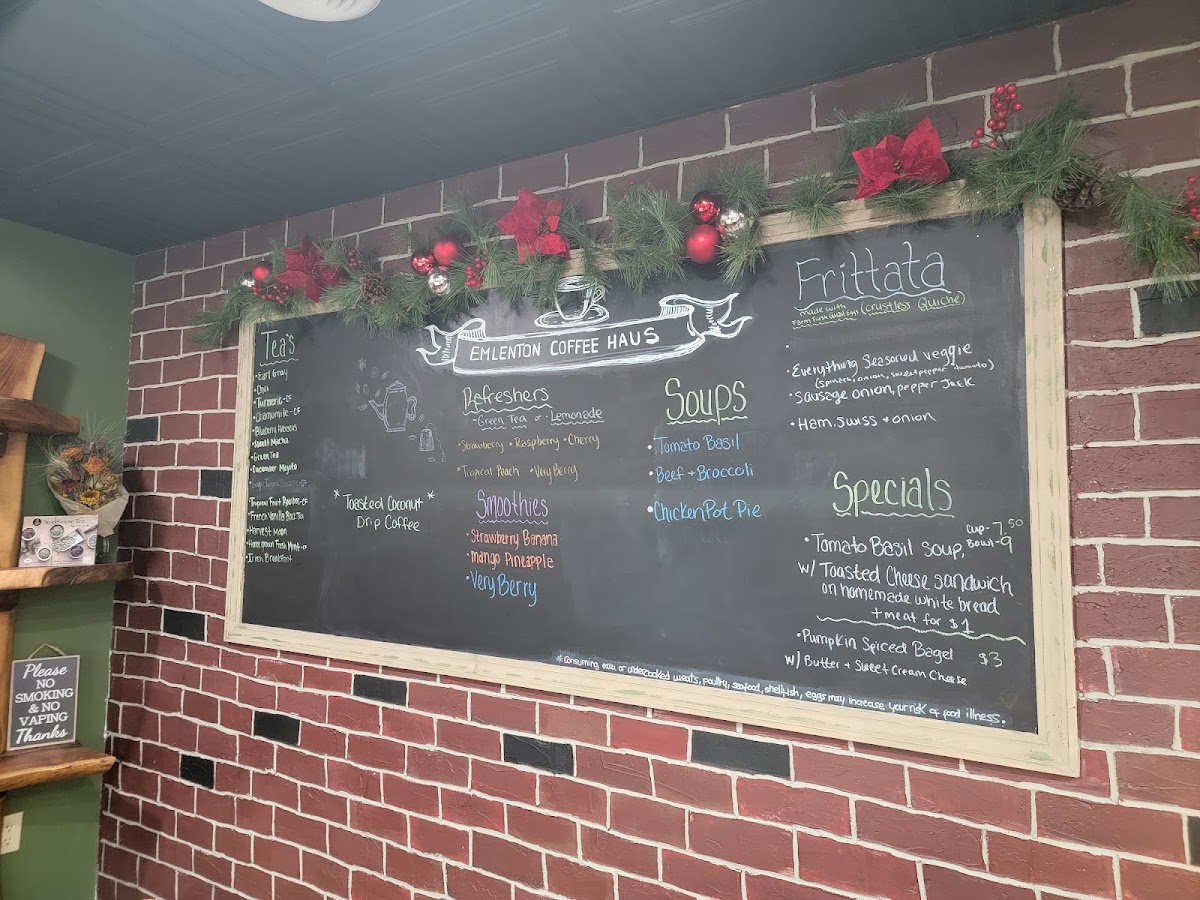 EMLENTON COFFEE HAUS
Tea's
• Earl Gray
• Chai
• Turmeric-CF
• Chamomile-CF
• Blueberry Hibiscus
• Sweet Matcha
• Green Tea
• Cucumber Mojito
• Tropical Fruit Rooibos-CF
• French Vanilla Black Tea
• Harvest Moon
• Homegrown Fresh Mint-CF
• Irish Breakfast
*Toasted Coconut*
Drip Coffee
Refreshers
-Green Tea or -Lemonade
• Strawberry • Raspberry • Cherry
• Tropical Peach • Very Berry
Smoothies
• Strawberry Banana
• Mango Pineapple
• Very Berry
Soups
• Tomato Basil
• Beef + Broccoli
• Chicken Pot Pie
Frittata
made with
Farm Fresh
(Crustless Quiche)
• Everything Seasoned veggie
(spinach, onion, sweet pepper + tomato)
• Sausage onion, pepper Jack
• Ham, Swiss + onion
Specials
• Tomato Basil soup,
Cup-7.50
Bowl-9
w/ Toasted Cheese sandwich
on homemade white bread
+ meat for $1
• Pumpkin Spiced Bagel $3
w/ Butter + Sweet Cream Cheese
*Consuming raw or undercooked meats, poultry, seafood, shellfish, eggs may increase your risk of food illness.
Please
NO
SMOKING
& NO
VAPING
Thanks